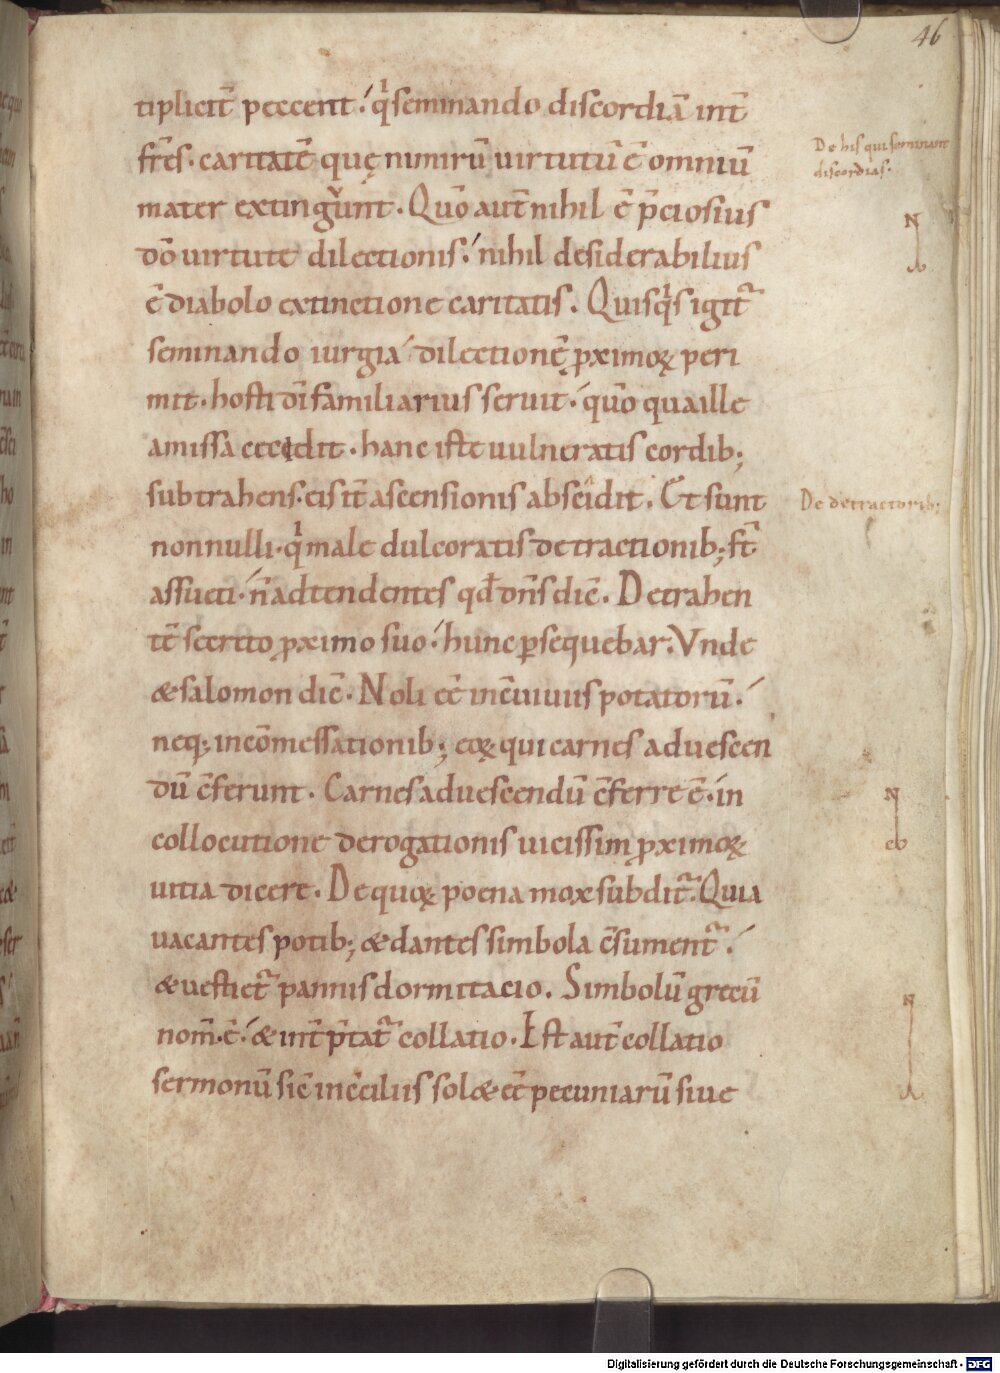 46
tiplicit̄ peccent? qͥ seminando discordiā int̄
fr̄es. caritatē quę nimirū uirtutū ē omniū
De his qui seminant
discordias.
mater extingͮunt. Quō aut̄ nihil ē p̄ciosius
N
dō uirtute dilectionis. nihil desiderabilius
ē diabolo extinctione caritatis. Quisqͥs igit᷑
seminando iurgia dilectionē ꝓximoꝝ peri
mit. hosti dī familiarius seruit. quō qua ille
amissa cecidit. hanc iste uulneratis cordib;
subtrahens. eis it̄ ascensionis abscidit. Et sunt
De detractorib;
nonnulli. qͥ male dulcoratis detractionib; st̄
assueti. n̄ adtendentes qđ dn̄s dic̄. Detrahen
tē secreto ꝓximo suo. hunc ꝑsequebar. Vnde
& salomon dic̄. Noli eē in c̄uiuiis potatorū.
neq; in cōmessationib; eoꝝ qui carnes ad uescen
dū c̄ferunt. Carnes ad uescendū c̄ferre ē. in
N
collocutione derogationis uicissim ꝓximoꝝ
uitia dicere. De quoꝝ poena mox subdit᷑. Quia
uacantes potib; & dantes simbola c̄sument᷑.
& uestiet᷑ pannis dormitacio. Simbolū grecū
N
nom̄. ē. & int̄p̄tat᷑ collatio. Est aut̄ collatio
sermonū sic̄ in c̄ciliis sol& eē pecuniarū siue
Digitalisierung gefördert durch die Deutsche Forschungsgemeinschaft - DFG